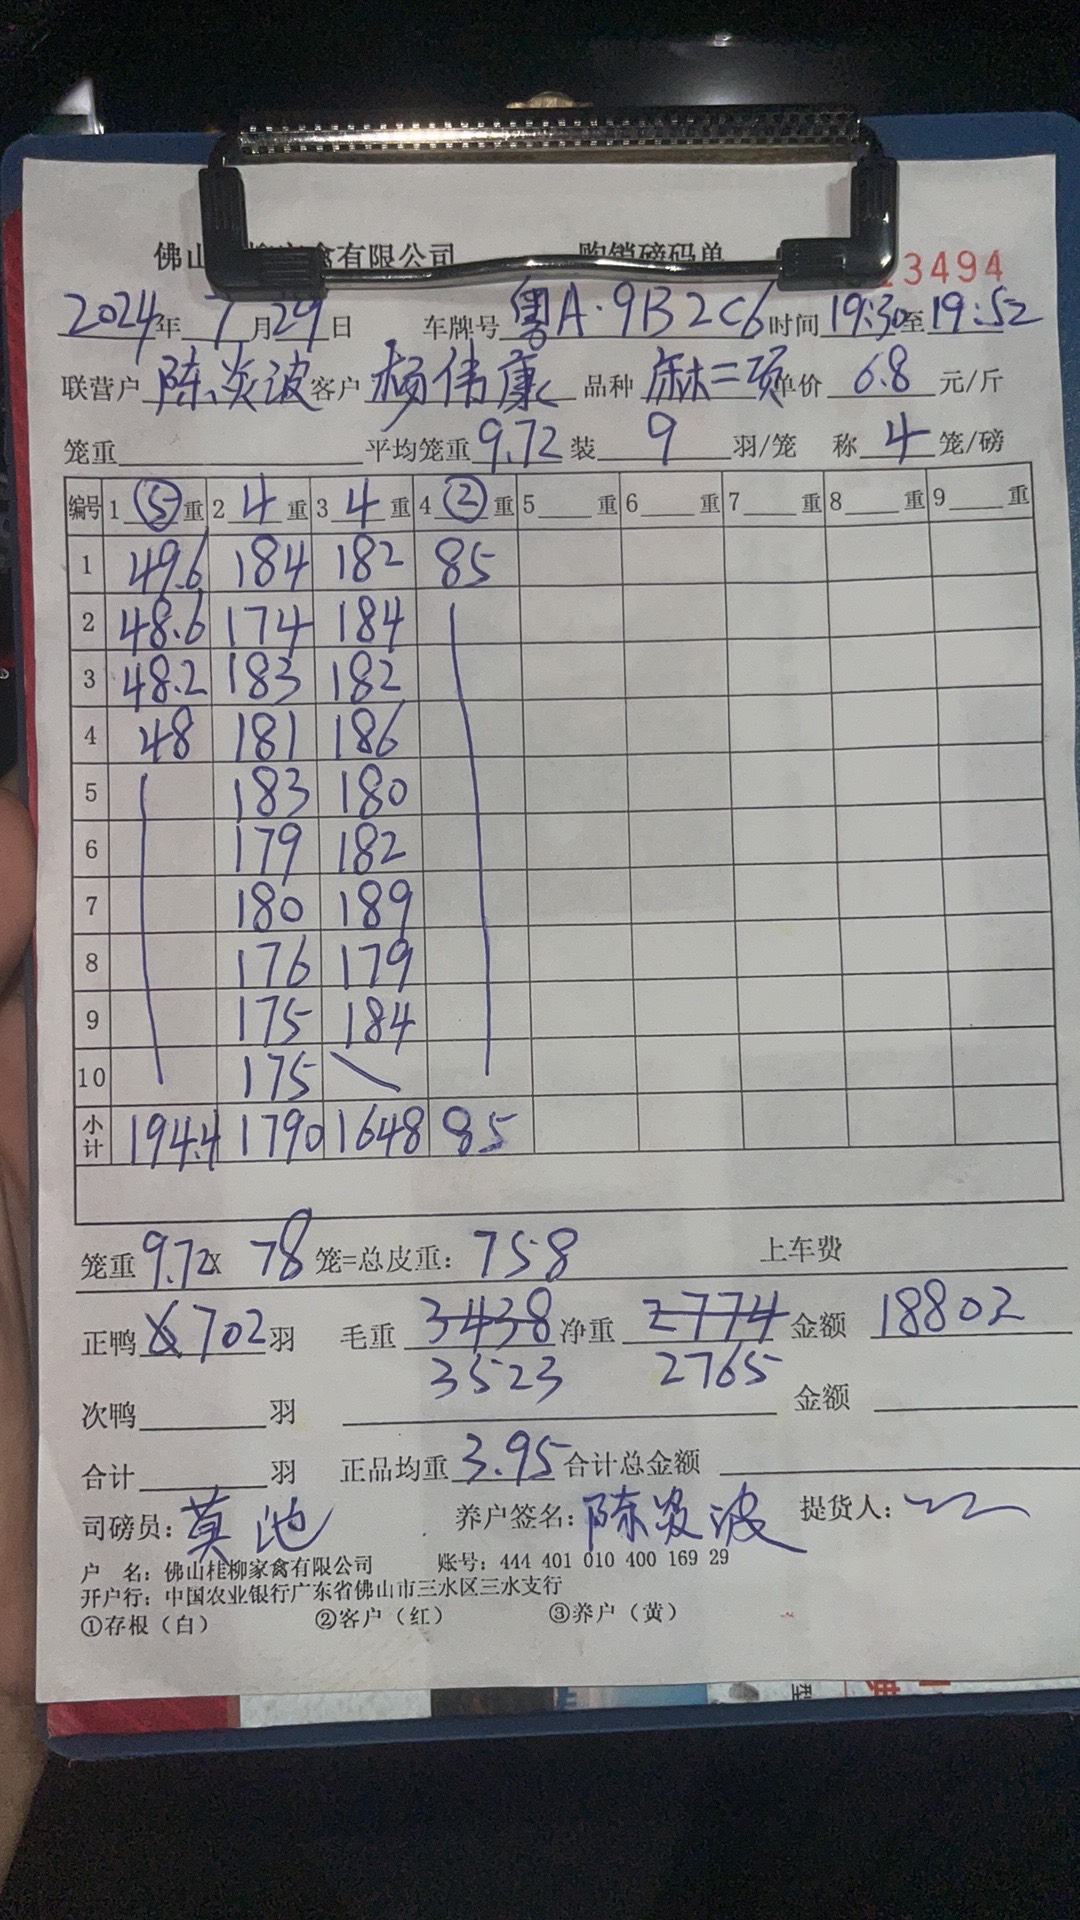 佛山桂柳家禽有限公司 购销磅码单 3494
2024年7月29日 车牌号粤A·9B2C6时间19:30至19:52
联营户陈炎波客户杨伟康 品种 麻二项单价 6.8 元/斤
笼重 平均笼重9.72装 9 羽/笼 称 4 笼/磅
编号 1 ⑤ 重 2 4 重 3 4 重 4 ② 重 5 重 6 重 7 重 8 重 9 重
1 49.6 184 182 85
2 48.6 174 184
3 48.2 183 182
4 48 181 186
5 183 180
6 179 182
7 180 189
8 176 179
9 175 184
10 175
小计 194.4 1790 1648 85
笼重9.72X 78 笼=总皮重: 758 上车费
正鸭 702羽 毛重 3438 净重 2774 金额 18802
3523 2765
次鸭 羽 金额
合计 羽 正品均重 3.95 合计总金额
司磅员: 莫池 养户签名: 陈炎波 提货人:
户 名: 佛山桂柳家禽有限公司 账号: 444 401 010 400 169 29
开户行: 中国农业银行广东省佛山市三水区三水支行
①存根（白） ②客户（红） ③养户（黄）